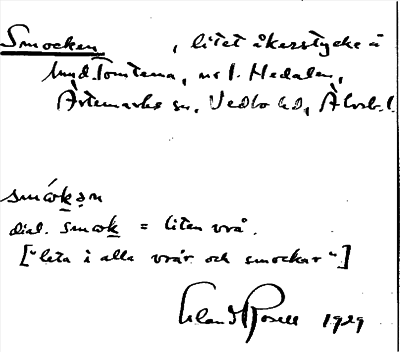 Smocken , litet åkerstycke å
und. Tomtena, nr 1. Hedalen,
Ärtemarks sn, Vedbo hd, Älvsb. l.
smɷ́kən
dial. smɷk = liten vrå.
["leta i alla vrår och smockar"]
Erland Rosell 1929